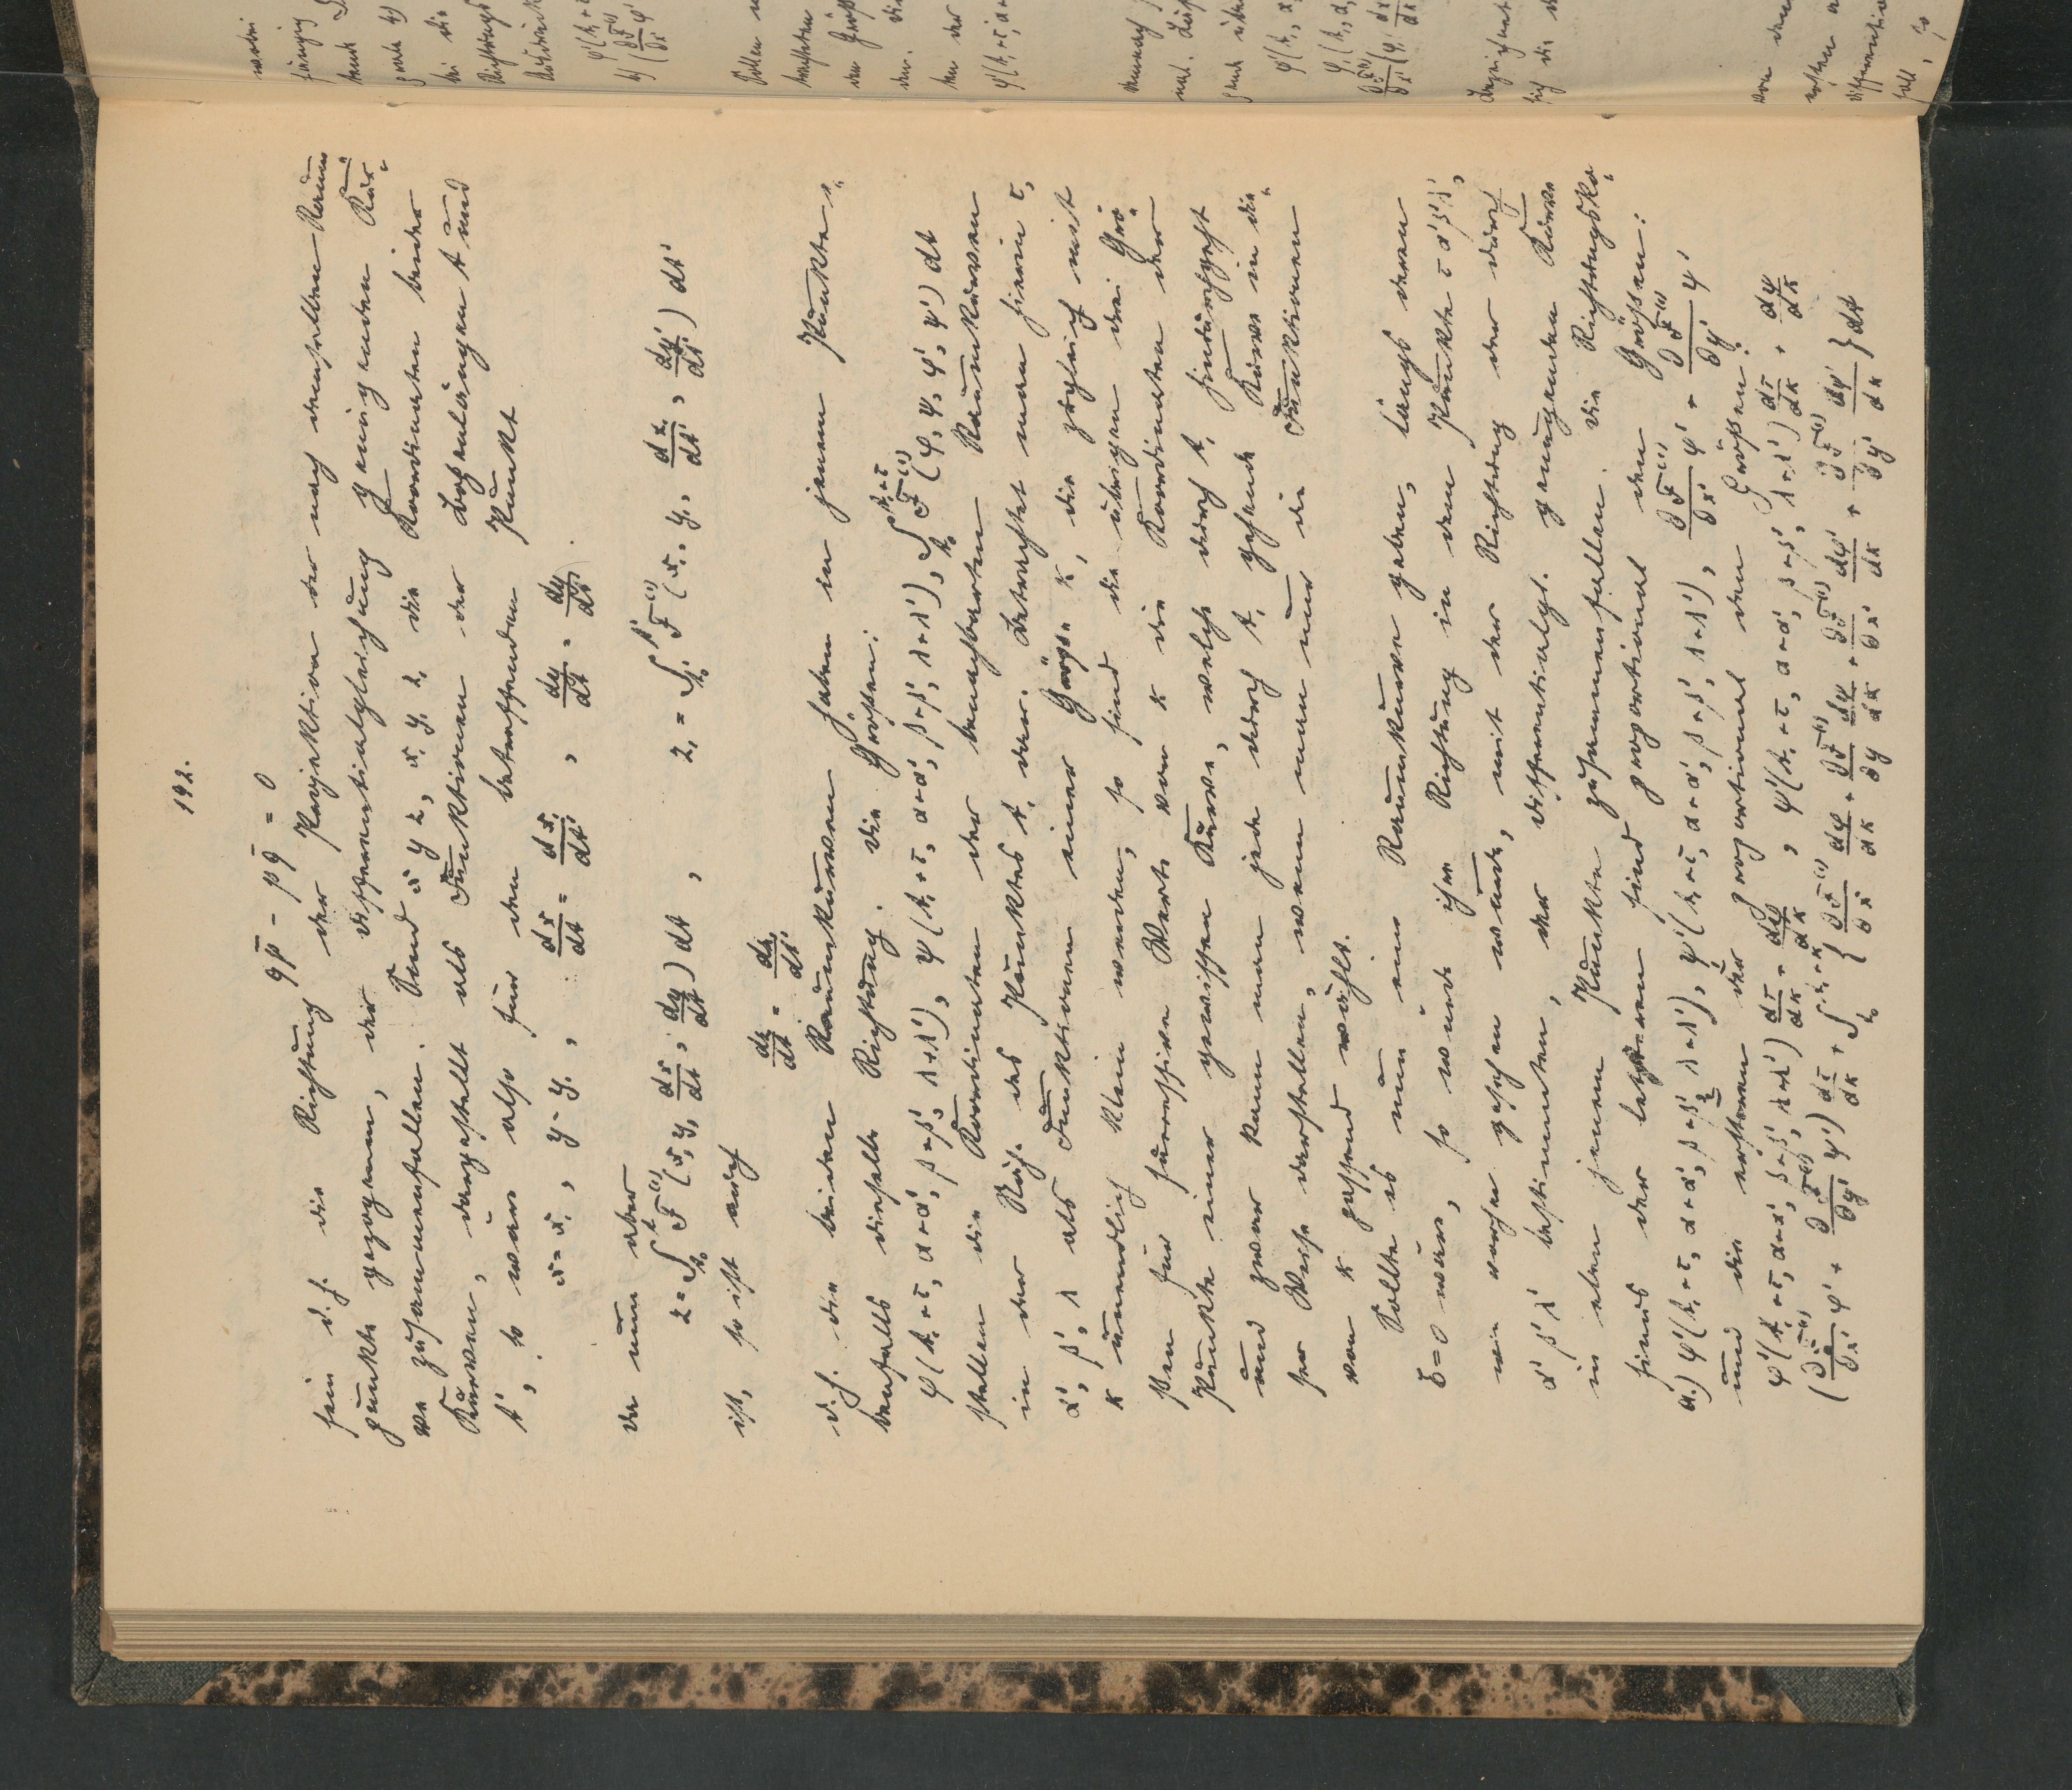 192.
q p̄ - p q̄ = 0
sein d. h. die Richtung der Projektion der nach demselben Raum
punkte gezogenen, der Differentialgleichung genügenden Kur„
ve zusammenfallen. Sind x y z, x₁ y₁ z₁ die Koordinaten beider
Kurven, dargestellt als Funktionen der Bogenlängen t und
t', so wäre also für den betreffenden Punkt
x = x₁, y = y₁, dx/dt = dx₁/dt', dy/dt = dy₁/dt'.
da nun aber
z = ∫_{t₀}^{t} F^{(1)}(x, y, dx/dt, dy/dt) dt, z₁ = ∫_{t₀}^{t'} F^{(1)}(x₁, y₁, dx₁/dt', dy₁/dt') dt'
ist, so ist auch
dz/dt = dz₁/dt'
d. h. die beiden Raumkurven haben in jenem Punkte e„
benfalls dieselbe Richtung. Die Größen:
φ(t₁+τ, α+α', β+β', λ+λ'), ψ(t₁+τ, α+α', β+β', λ+λ'), ∫_{t₀}^{t₁+τ} F^{(1)}(φ, ψ, φ', ψ') dt
stellen die Koordinaten der benachbarten Raumkurven
in der Nähe des Punktes t₁ dar. Betrachtet man hierin τ,
α', β', λ' als Funktionen einer Größe κ, die zugleich mit
κ unendlich klein werden, so sind die übrigen drei Grö„
ßen für sukzessive Werte von κ die Koordinaten der
Punkte einer gewissen Kurve, welche durch t₁ hindurchgeht
und zwar kann man jede durch t₁ gehende Kurve in die„
ser Weise darstellen, wenn man nur die Funktionen
von κ passend wählt.
Sollte es nun eine Raumkurve geben, längs deren
δ = 0 wäre, so würde ihre Richtung in dem Punkte τ α' β' λ',
wie vorhin gesehen wurde, mit der Richtung der durch
α' β' λ' bestimmten, der Differentialgl. genügenden Kurve
in eben jenem Punkte zusammenfallen. Die Richtungsko„
sinus der letzteren sind proportional den Größen:
a.) φ'(t₁+τ, α+α', β+β', λ+λ'), ψ'(t₁+τ, α+α', β+β', λ+λ'), ∂F^{(1)}/∂x' φ' + ∂F^{(1)}/∂y' ψ'
und die ersteren der proportional den Größen:
φ'(t₁+τ, α+α', β+β', λ+λ') dτ/dκ + dφ/dκ, ψ'(t₁+τ, α+α', β+β', λ+λ') dτ/dκ + dψ/dκ
(∂F^{(1)}/∂x' φ' + ∂F^{(1)}/∂y' ψ') dτ/dκ + ∫_{t₀}^{t₁+κ} {∂F^{(1)}/∂x dφ/dκ + ∂F^{(1)}/∂y dψ/dκ + ∂F^{(1)}/∂x' dφ'/dκ + ∂F^{(1)}/∂y' dψ'/dκ} dt